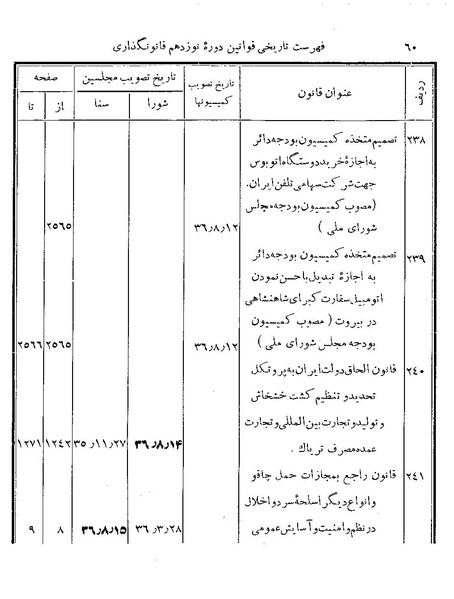 ۶۰ فهرست تاریخی قوانین دورهٔ نوزدهم قانونگذاری
ردیف عنوان قانون تاریخ تصویب کمیسیونها تاریخ تصویب مجلسین صفحه
شورا سنا از تا
۲۳۸ تصمیم متخذه کمیسیون بودجه دائر
به اجازهٔ خرید دو دستگاه اتوبوس
جهت شرکت سهامی تلفن ایران.
(مصوب کمیسیون بودجه مجلس
شورای ملی) ۳۶٫۸٫۱۲ ۲۵۶۵
۲۳۹ تصمیم متخذه کمیسیون بودجه دائر
به اجازهٔ تبدیل باحسن نمودن
اتومبیل سفارت کبرای شاهنشاهی
در بیروت (مصوب کمیسیون
بودجه مجلس شورای ملی) ۳۶٫۸٫۱۲ ۲۵۶۵ ۲۵۶۶
۲۴۰ قانون الحاق دولت ایران به پروتکل
تحدید و تنظیم کشت خشخاش
و تولید و تجارت بین المللی و تجارت
عمده مصرف تریاك. ۳۶٫۸٫۱۴ ۳۵٫۱۱٫۲۷ ۱۲۴۲ ۱۲۷۱
۲۴۱ قانون راجع بمجازات حمل چاقو
و انواع دیگر اسلحهٔ سرد و اخلال
در نظم و امنیت و آسایش عمومی ۳۶٫۳٫۲۸ ۳۶٫۸٫۱۵ ۸ ۹